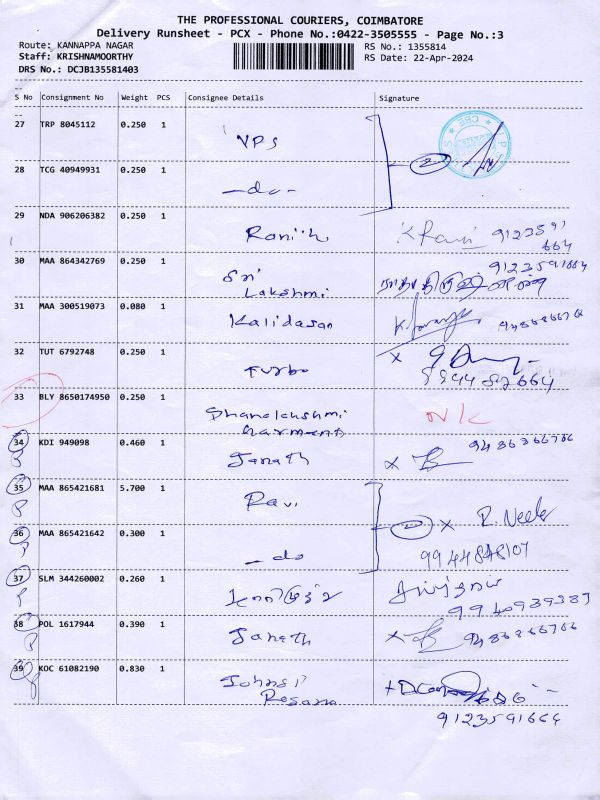 THE PROFESSIONAL COURIERS, COIMBATORE
Delivery Runsheet - PCX - Phone No.:0422-3505555 - Page No.:3
Route: KANNAPPA NAGAR RS No.: 1355814
Staff: KRISHNAMOORTHY RS Date: 22-Apr-2024
DRS No.: DCJB135581403
S No Consignment No Weight PCS Consignee Details Signature
27 TRP 8045112 0.250 1 VPS
28 TCG 40949931 0.250 1 -do- 2
29 NDA 906206382 0.250 1 9123591
664
30 MAA 864342769 0.250 1 Sri 9123591664
Lakshmi
31 MAA 300519073 0.080 1 Kalidasan
32 TUT 6792748 0.250 1 Turbo
9944 87664
33 BLY 8650174950 0.250 1 Dhanalakshmi
Garments
34 KDI 949098 0.460 1 Janath 9486366766
35 MAA 865421681 5.700 1 Ravi
36 MAA 865421642 0.300 1 -do
37 SLM 344260002 0.260 1
9940939389
38 POL 1617944 0.390 1 Janath 9486366766
39 KOC 61082190 0.830 1 Johnsi
Rosana
9123591664